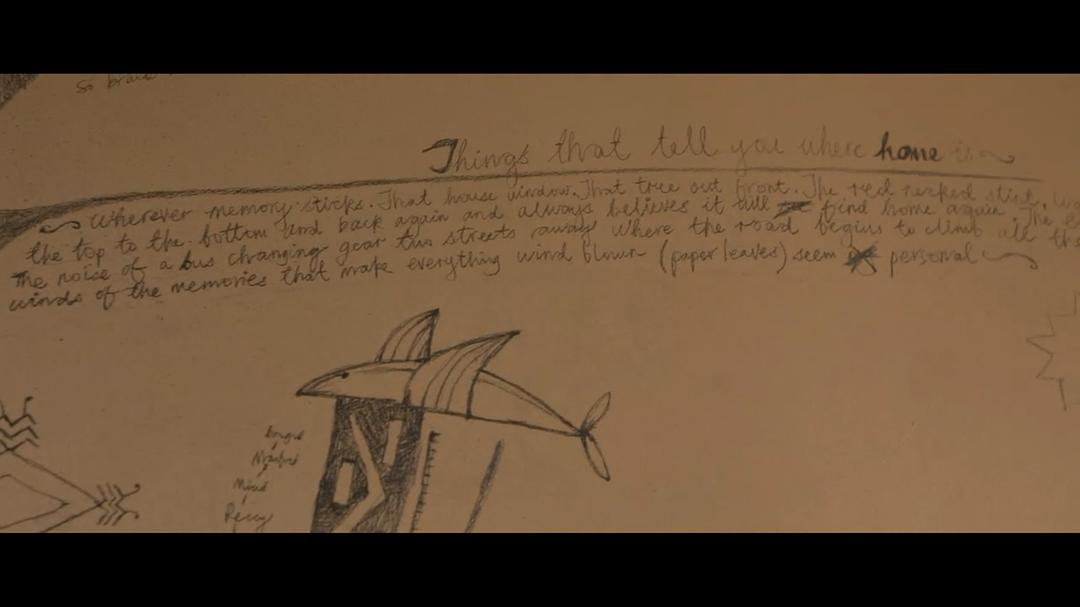 So brave
Things that tell you where home is
Wherever memory sticks. That house window. That tree out front. The red necked stint,
the top to the bottom and back again and always believes it will find home again. The
The noise of a bus changing gear two streets away where the road begins to climb all the
winds of the memories that make everything wind blown (paper leaves) seem personal
Percy